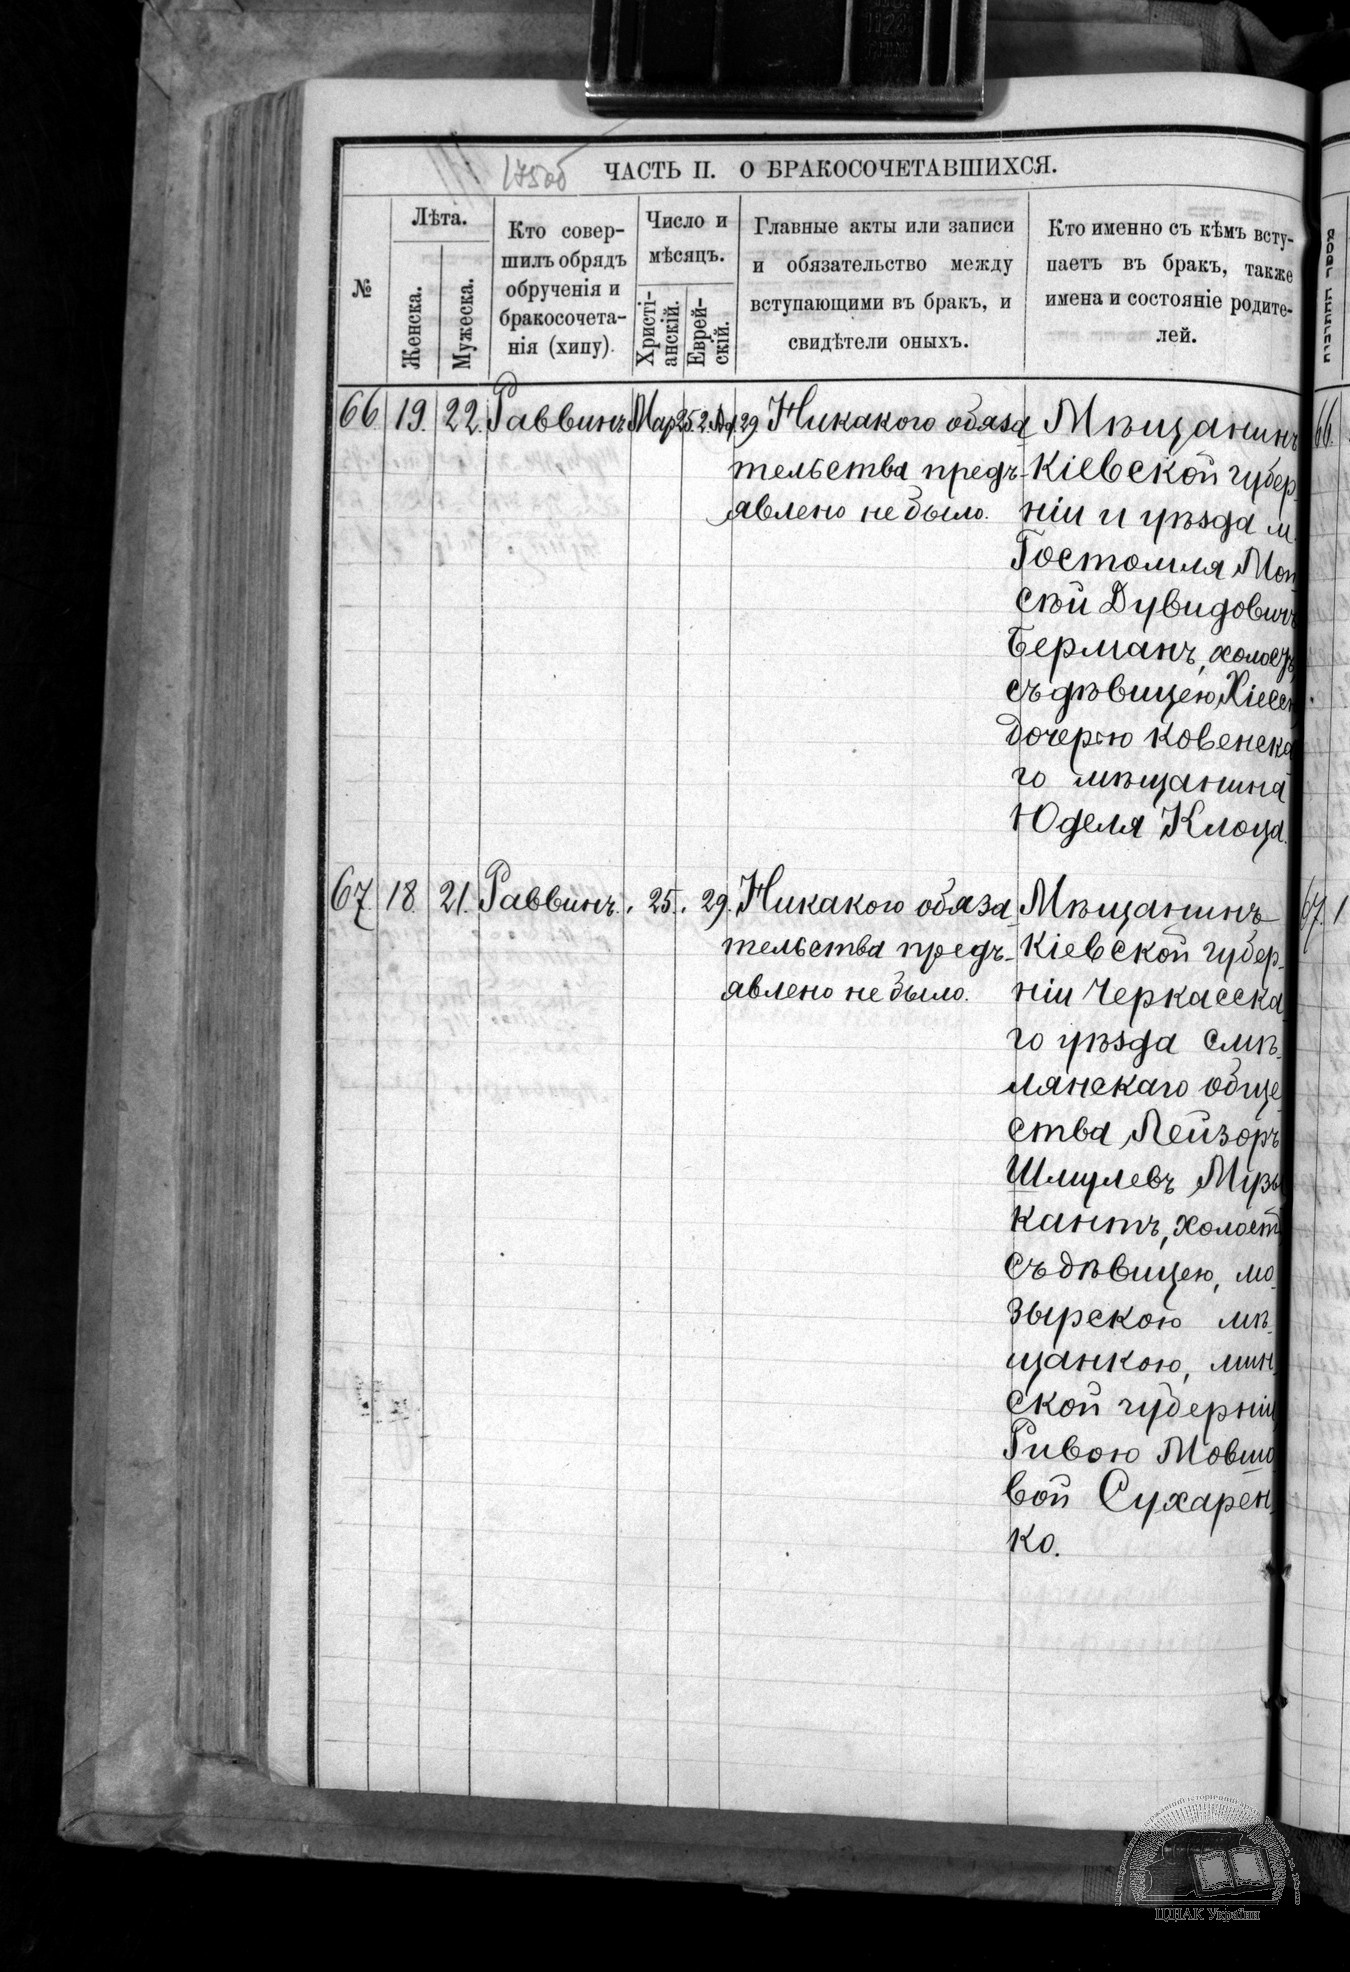 175об
ЧАСТЬ II. О БРАКОСОЧЕТАВШИХСЯ.
№
Лѣта.
Женска.
Мужеска.
Кто совер-
шилъ обрядъ
обрученія и
бракосочета-
нія (хипу).
Число и
мѣсяцъ.
Христі-
анскій.
Еврей-
скій.
Главные акты или записи
и обязательство между
вступающими въ бракъ, и
свидѣтели оныхъ.
Кто именно съ кѣмъ всту-
паетъ въ бракъ, также
имена и состояніе родите-
лей.
66. 19. 22. Раввинъ Мар. 25. 29. Никакого обяза
тельства предъ-
явлено не было.
Мѣщанинъ
Кіевской губер
ніи и уѣзда м.
Гостомля Мош
Дувидовичъ
Берманъ, холостъ
съ дѣвицею
дочерью ковенска
го мѣщанина
Юделя Клоца.
66.
67. 18. 21. Раввинъ. 25. 29. Никакого обяза
тельства предъ-
явлено не было.
Мѣщанинъ
Кіевской губер-
ніи Черкасска
го уѣзда смѣ-
лянскаго обще
ства Лейзоръ
Шмулевъ Музы
кантъ, холостъ
съ дѣвицею, мо
зырскою мѣ-
щанкою, мин
ской губерніи,
Ривою Мовшо
вой Сухарен
ко.
67. 1
ЦДІАК України